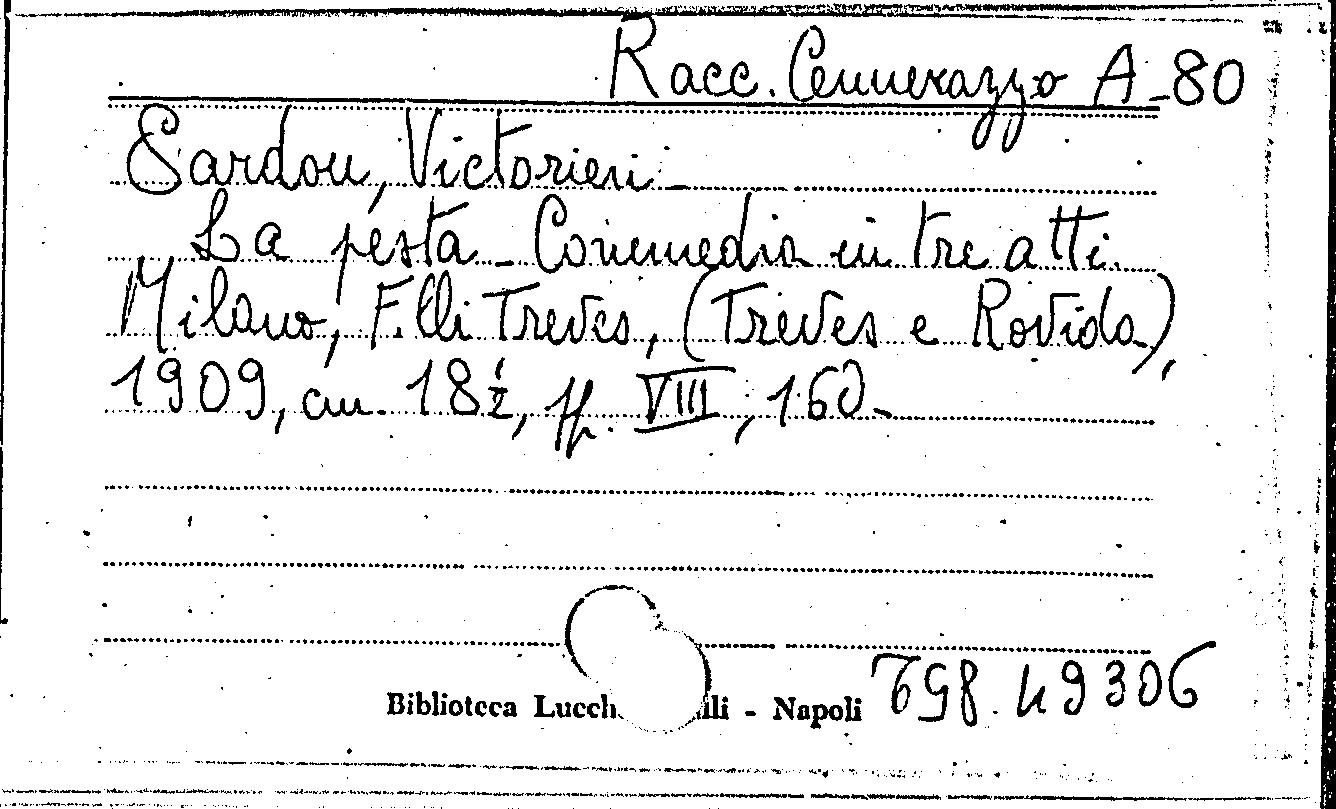 Racc. Cennerazzo A-80
Sardou, Victorien -
La pista - Commedia in tre atti.
Milano, F.lli Treves, (Treves e Rovida),
1909, cm. 18½, pp. VIII, 160 -
Biblioteca Lucch ili - Napoli
49306